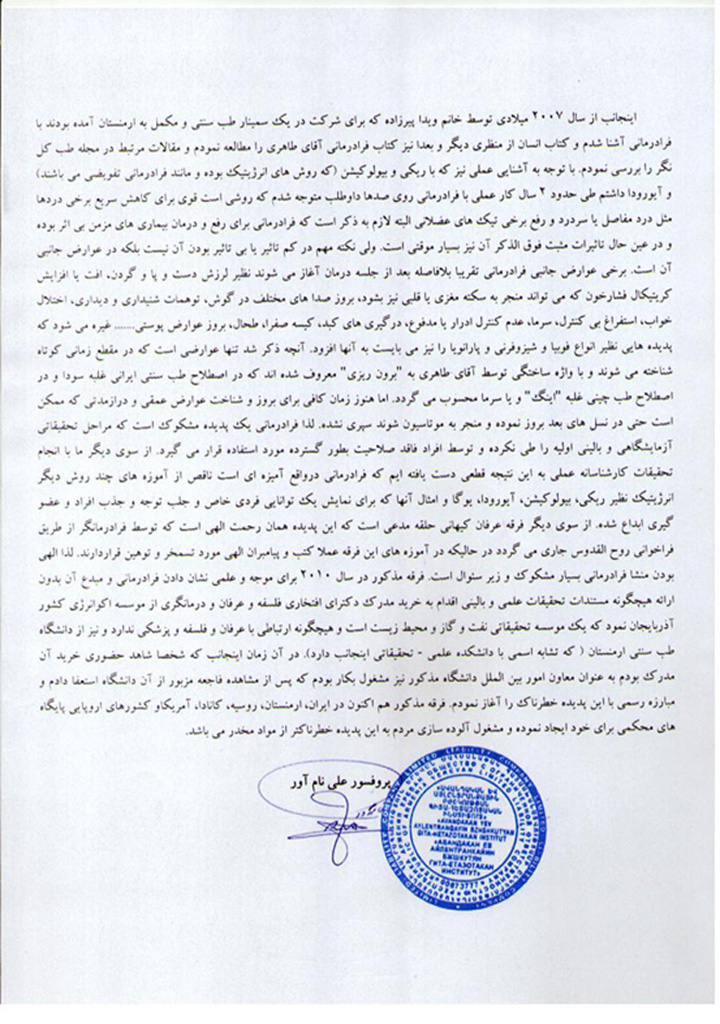 اینجانب از سال ۲۰۰۷ میلادی توسط خانم ویدا پیرزاده که برای شرکت در یک سمینار طب سنتی و مکمل به ارمنستان آمده بودند با
فرادرمانی آشنا شدم و کتاب انسان از منظری دیگر و بعدا نیز کتاب فرادرمانی آقای طاهری را مطالعه نمودم و مقالات مرتبط در مجله طب کل
نگر را بررسی نمودم. با توجه به آشنایی عملی نیز که با ریکی و بیولوکیشن (که روش های انرژیتیک بوده و مانند فرادرمانی تفویضی می باشند)
و آیورودا داشتم طی حدود ۲ سال کار عملی با فرادرمانی روی صدها داوطلب متوجه شدم که روشی است قوی برای کاهش سریع برخی دردها
مثل درد مفاصل یا سردرد و رفع برخی تیک های عضلانی البته لازم به ذکر است که فرادرمانی برای رفع و درمان بیماری های مزمن بی اثر بوده
و در عین حال تاثیرات مثبت فوق الذکر آن نیز بسیار موقتی است. ولی نکته مهم در کم تاثیر یا بی تاثیر بودن آن نیست بلکه در عوارض جانبی
آن است. برخی عوارض جانبی فرادرمانی تقریبا بلافاصله بعد از جلسه درمان آغاز می شوند نظیر لرزش دست و پا و گردن، افت یا افزایش
کریتیکال فشارخون که می تواند منجر به سکته مغزی یا قلبی نیز بشود، بروز صدا های مختلف در گوش، توهمات شنیداری و دیداری، اختلال
خواب، استفراغ بی کنترل، سرما، عدم کنترل ادرار یا مدفوع، درگیری های کبد، کیسه صفرا، طحال، بروز عوارض پوستی....... غیره می شود که
پدیده هایی نظیر انواع فوبیا و شیزوفرنی و پارانویا را نیز می بایست به آنها افزود. آنچه ذکر شد تنها عوارضی است که در مقطع زمانی کوتاه
شناخته می شوند و با واژه ساختگی توسط آقای طاهری به "برون ریزی" معروف شده اند که در اصطلاح طب سنتی ایرانی غلبه سودا و در
اصطلاح طب چینی غلبه "اینگ" و یا سرما محسوب می گردد. اما هنوز زمان کافی برای بروز و شناخت عوارض عمقی و درازمدتی که ممکن
است حتی در نسل های بعد بروز نموده و منجر به موتاسیون شوند سپری نشده. لذا فرادرمانی یک پدیده مشکوک است که مراحل تحقیقاتی
آزمایشگاهی و بالینی اولیه را طی نکرده و توسط افراد فاقد صلاحیت بطور گسترده مورد استفاده قرار می گیرد. از سوی دیگر ما با انجام
تحقیقات کارشناسانه عملی به این نتیجه قطعی دست یافته ایم که فرادرمانی درواقع آمیزه ای است ناقص از آموزه های چند روش دیگر
انرژیتیک نظیر ریکی، بیولوکیشن، آیورودا، یوگا و امثال آنها که برای نمایش یک توانایی فردی خاص و جلب توجه و جذب افراد و عضو
گیری ابداع شده. از سوی دیگر فرقه عرفان کیهانی حلقه مدعی است که این پدیده همان رحمت الهی است که توسط فرادرمانگر از طریق
فراخوانی روح القدوس جاری می گردد در حالیکه در آموزه های این فرقه عملا کتب و پیامبران الهی مورد تسمخر و توهین قراردارند. لذا الهی
بودن منشا فرادرمانی بسیار مشکوک و زیر سئوال است. فرقه مذکور در سال ۲۰۱۰ برای موجه و علمی نشان دادن فرادرمانی و مبدع آن بدون
ارائه هیچگونه مستندات تحقیقات علمی و بالینی اقدام به خرید مدرک دکترای افتخاری فلسفه و عرفان و درمانگری از موسسه اکوانرژی کشور
آذربایجان نمود که یک موسسه تحقیقاتی نفت و گاز و محیط زیست است و هیچگونه ارتباطی با عرفان و فلسفه و پزشکی ندارد و نیز از دانشگاه
طب سنتی ارمنستان ( که تشابه اسمی با دانشکده علمی - تحقیقاتی اینجانب دارد). در آن زمان اینجانب که شخصا شاهد حضوری خرید آن
مدرک بودم به عنوان معاون امور بین الملل دانشگاه مذکور نیز مشغول بکار بودم که پس از مشاهده فاجعه مزبور از آن دانشگاه استعفا دادم و
مبارزه رسمی با این پدیده خطرناک را آغاز نمودم. فرقه مذکور هم اکنون در ایران، ارمنستان، روسیه، کانادا، آمریکاو کشورهای اروپایی پایگاه
های محکمی برای خود ایجاد نموده و مشغول آلوده سازی مردم به این پدیده خطرناکتر از مواد مخدر می باشد.
پروفسور علی نام آور
«ԱՎԱՆԴԱԿԱՆ ԵՎ
«AVANDAKAN YEV
AYLENTRANQAYIN BZHSHKUTYAN
GITA-HETAZOTAKAN INSTITUT»
«АВАНДАКАН ЕВ
АЙЛЕНТРАНКАЙИН
БЖШКУТЯН
ГИТА-ЕТАЗОТАКАН
ИНСТИТУТ»
LIMITED LIABILITY COMPANY